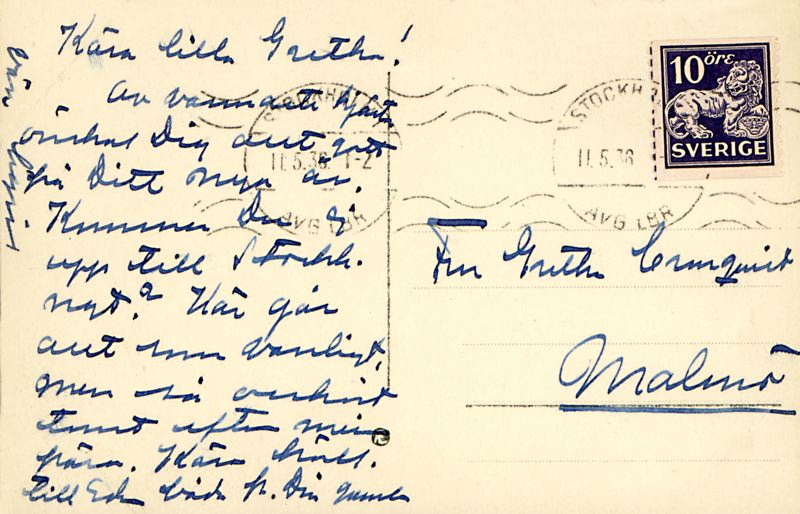 Kära lilla Gretha!
Av varmaste hjärta
önskas Dig allt gott
på Ditt nya år.
Kommer Du ej
upp till Stockh.
nyt? Här går
allt som vanligt,
men så oerhört
tomt efter min
kära. Kära häls.
till Eder båda fr. Din gamla
vän
STOCKHOLM
11.5.36. 1-2
AVG LBR
STOCKH
11.5.36
AVG LBR
10 ÖRE
SVERIGE
Fru Gretha Cronquist
Malmö